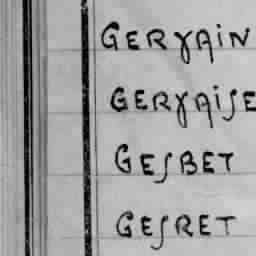 GERVAIN
GERVAISE
GESBET
GESRET